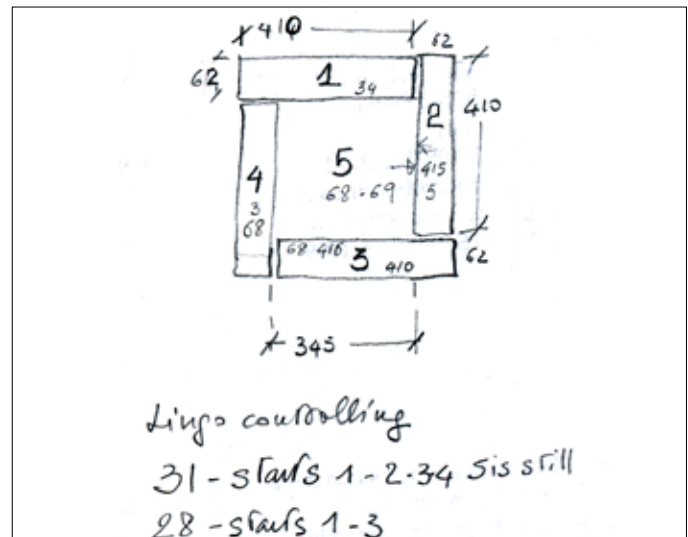 410
62
62
1 34
2
410
5
415
68-69
5
4
3
68
68 416 3 410
62
345
Lingo controlling
31 - starts 1 - 2 - 34 5 is still
28 - starts 1 - 3